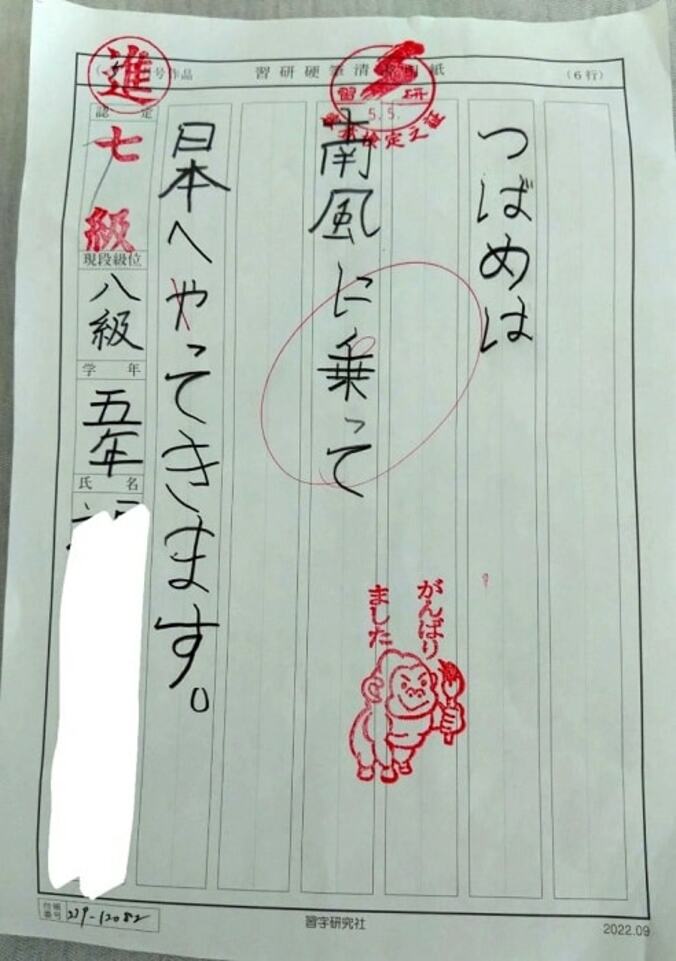 習研硬筆清書用紙
(6行)
号作品
進
習研
5.5.
検定之証
つばめは
南風に乗って
日本へやってきます。
認定
七級
現段級位
八級
学年
五年
氏名
がんばり
ました
習字研究社
2022.09